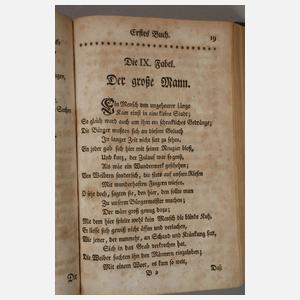 Erstes Buch. 19
Die IX. Fabel.
Der große Mann.
Ein Mensch von ungeheurer Länge
Kam einst in eine kleine Stadt;
So gleich ward auch um ihn ein schreckliches Gedränge;
Die Bürger wußten sich an diesem Goliath
In langer Zeit nicht satt zu sehen,
Ein jeder gab sich hier mit seiner Neugier bloß,
Und kurz, der Zulauf war so groß,
Als wär ein Wunderwerk geschehen;
Den Weibern sonderlich, die stets auf diesen Riesen
Mit wunderhaften Fingern wiesen.
O seht doch, sagten sie, den hier, den sollte man
Zu unserm Bürgermeister machen;
Der wäre groß genug dazu;
Mit dem hier spielte wohl kein Mensch die blinde Kuh,
Er ließe sich gewiß nicht äffen und verlachen,
Wie jener, der nunmehr, an Schand und Kränkung satt,
Sich in das Grab verkrochen hat.
Die Weiber suchten ihn den Männern einzuloben;
Mit einem Wort, es kam so weit,
B 2 Daß